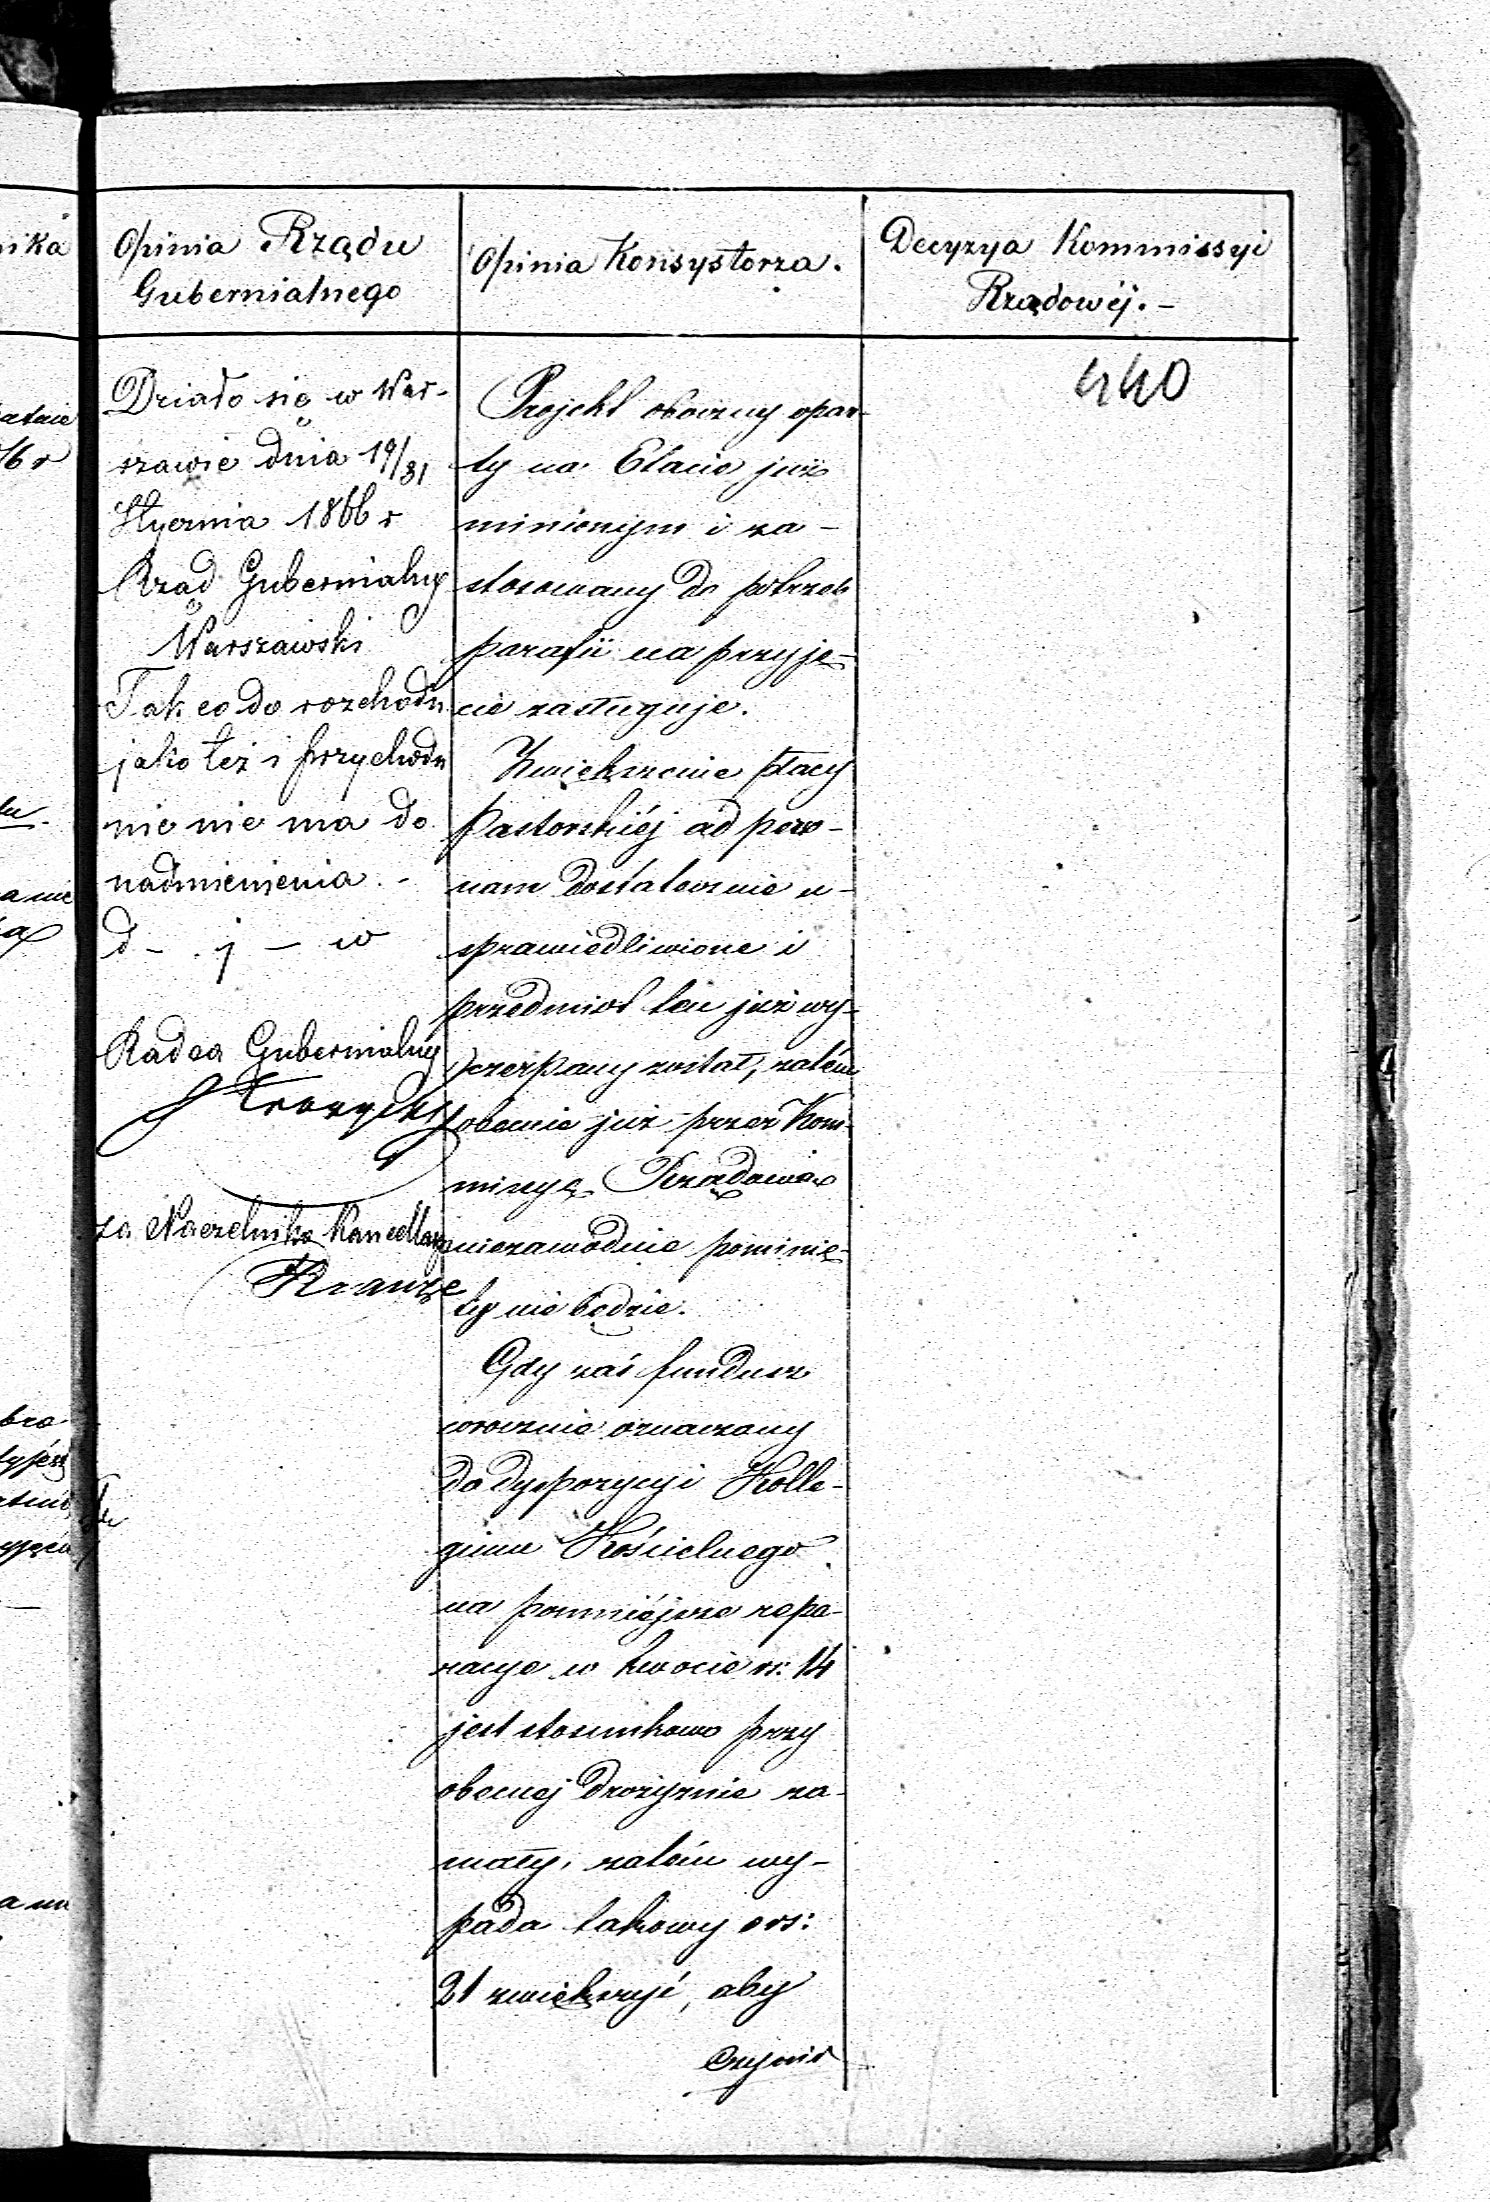 Opinia Rządu
Gubernialnego
Działo się w War-
szawie dnia 19/31
Stycznia 1866 r
Rząd Gubernialny
Warszawski
Tak co do rozchodu
jako też i przychodu
nic nie ma do
nadmienienia. -
d - j - w
Radca Gubernialny
za Naczelnika Kancellaryi
Krauze
Opinia Konsystorza.
Projekt oboczny opar-
ty na Etacie już
minionym i za-
stosowany do potrzeb
parafii na przyję-
cie zasługuje.
Zwiększenie płacy
Pastorskiéj ad perso-
nam dostatecznie u-
sprawiedliwione i
przedmiot ten już wy-
czerpany został, zatém
obecnie już przez Kom-
misyę Rządową
niezawodnie pominię-
ty nie będzie.
Gdy zaś fundusz
corocznie oznaczony
do dyspozycyi Kolle-
gium Kościelnego
na pomniéjsze repa-
racye w kwocie rs: 14
jest stosunkowo przy
obecnej drożyznie za-
mały, zatém wy-
pada takowy o rs:
21 zwiększyć, aby
czynić
Decyzya Kommissyi
Rządowéj. -
440